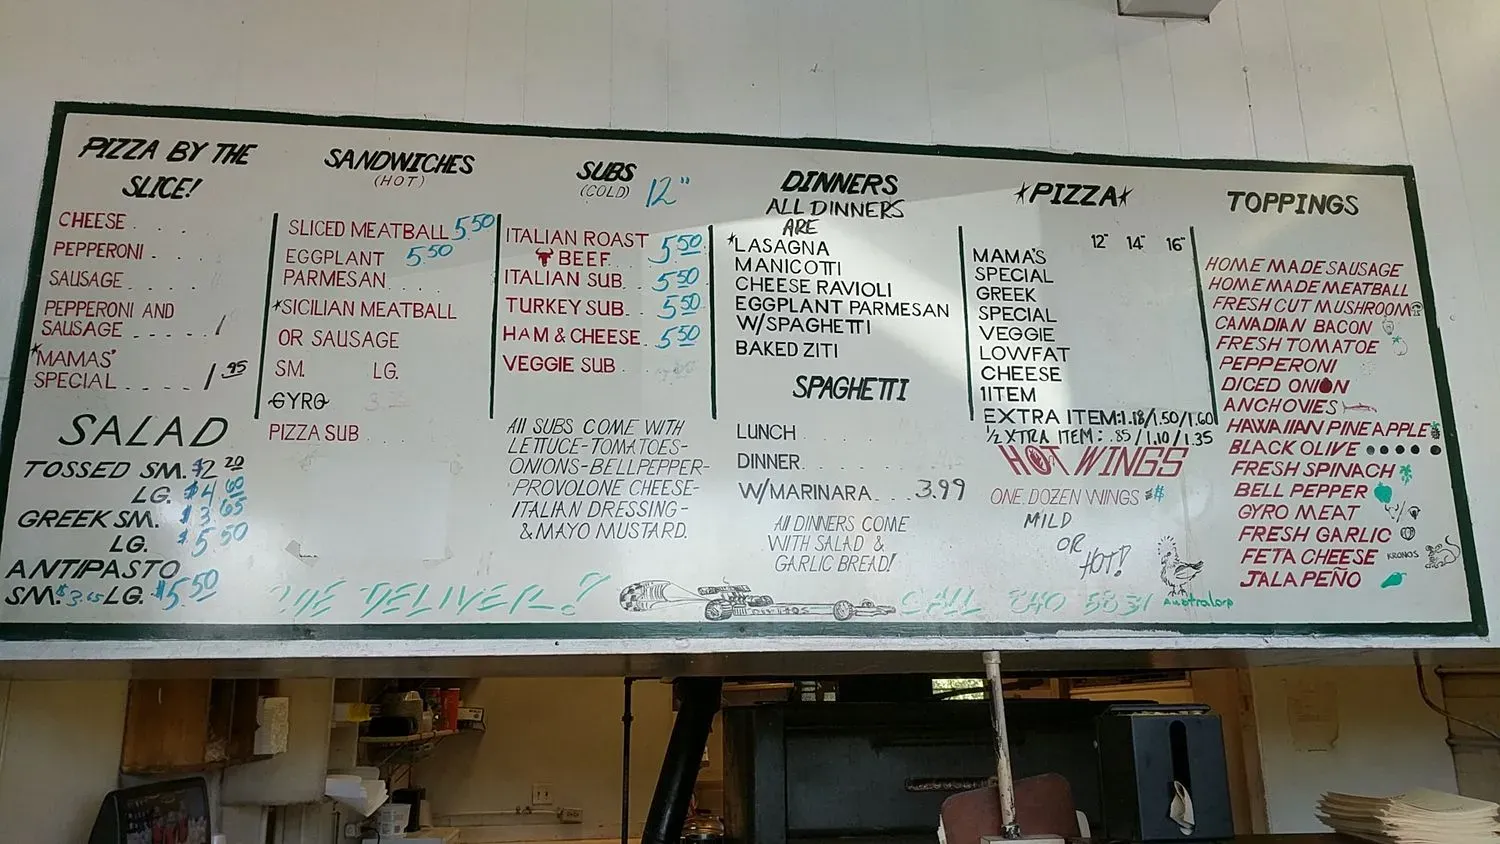 PIZZA BY THE
SLICE!
CHEESE . . . .
PEPPERONI . . .
SAUSAGE . . . .
PEPPERONI AND
SAUSAGE . . . .
*MAMAS'
SPECIAL . . . . 1.95
SALAD
TOSSED SM. $2.20
LG. $4.60
GREEK SM. $3.65
LG. $5.50
ANTIPASTO
SM. $3.65 LG. $5.50
SANDWICHES
(HOT)
SLICED MEATBALL 5.50
EGGPLANT 5.50
PARMESAN . . . .
*SICILIAN MEATBALL
OR SAUSAGE
SM. LG.
GYRO
PIZZA SUB
SUBS
(COLD) 12"
ITALIAN ROAST
BEEF . . 5.50
ITALIAN SUB . . 5.50
TURKEY SUB . . 5.50
HAM & CHEESE . 5.50
VEGGIE SUB . .
All SUBS COME WITH
LETTUCE-TOMATOES-
ONIONS-BELLPEPPER-
PROVOLONE CHEESE-
ITALIAN DRESSING-
& MAYO MUSTARD.
DINNERS
ALL DINNERS
ARE
*LASAGNA
MANICOTTI
CHEESE RAVIOLI
EGGPLANT PARMESAN
W/SPAGHETTI
BAKED ZITI
SPAGHETTI
LUNCH . . . .
DINNER . . . .
W/MARINARA . . . 3.99
All DINNERS COME
WITH SALAD &
GARLIC BREAD!
*PIZZA*
12" 14" 16"
MAMA'S
SPECIAL
GREEK
SPECIAL
VEGGIE
LOWFAT
CHEESE
1 ITEM
EXTRA ITEM: 1.18/1.50/1.60
½ XTRA ITEM: .85/1.10/1.35
HOT WINGS
ONE DOZEN WINGS
MILD
OR
HOT!
Australorp
TOPPINGS
HOME MADE SAUSAGE
HOME MADE MEATBALL
FRESH CUT MUSHROOM
CANADIAN BACON
FRESH TOMATOE
PEPPERONI
DICED ONION
ANCHOVIES
HAWAIIAN PINEAPPLE
BLACK OLIVE
FRESH SPINACH
BELL PEPPER
GYRO MEAT
FRESH GARLIC
FETA CHEESE KRONOS
JALAPEÑO
WE DELIVER.? CALL 840 5831